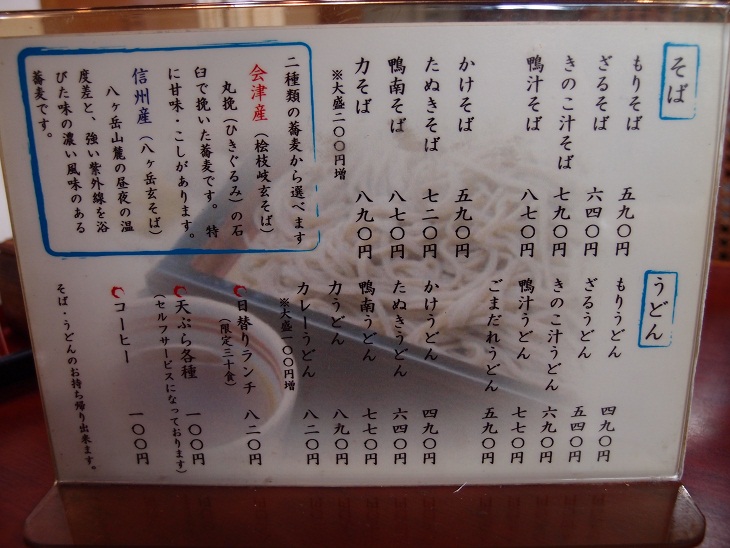 そば
もりそば 五九〇円
ざるそば 六四〇円
きのこ汁そば 七九〇円
鴨汁そば 八七〇円
かけそば 五九〇円
たぬきそば 七二〇円
鴨南そば 八七〇円
力そば 八九〇円
※大盛二〇〇円増
二種類の蕎麦から選べます
会津産（桧枝岐玄そば）
丸挽（ひきぐるみ）の石
臼で挽いた蕎麦です。 特
に甘味・こしがあります。
信州産（八ヶ岳玄そば）
八ヶ岳山麓の昼夜の温
度差と、強い紫外線を浴
びた味の濃い風味のある
蕎麦です。
うどん
もりうどん 四九〇円
ざるうどん 五四〇円
きのこ汁うどん 六九〇円
鴨汁うどん 七七〇円
ごまだれうどん 五九〇円
かけうどん 四九〇円
たぬきうどん 六四〇円
鴨南うどん 七七〇円
力うどん 八九〇円
カレーうどん 八二〇円
※大盛一〇〇円増
日替りランチ 八二〇円
（限定三十食）
天ぷら各種 一〇〇円
（セルフサービスになっております）
コーヒー 一〇〇円
そば・うどんのお持ち帰り出来ます。